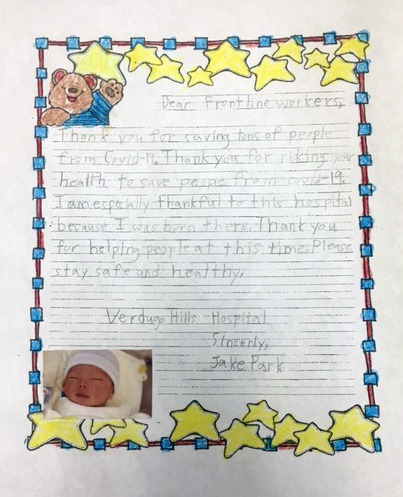 Dear Frontline workers,
Thank you for saving tons of people
from Covid-19. Thank you for risking your
health to save peope from covid-19.
I am especially thankful to this hospital
because I was born there. Thank you
for helping people at this time. Please
stay safe and healthy.
Verdugo Hills Hospital
Sincerly,
Jake Park